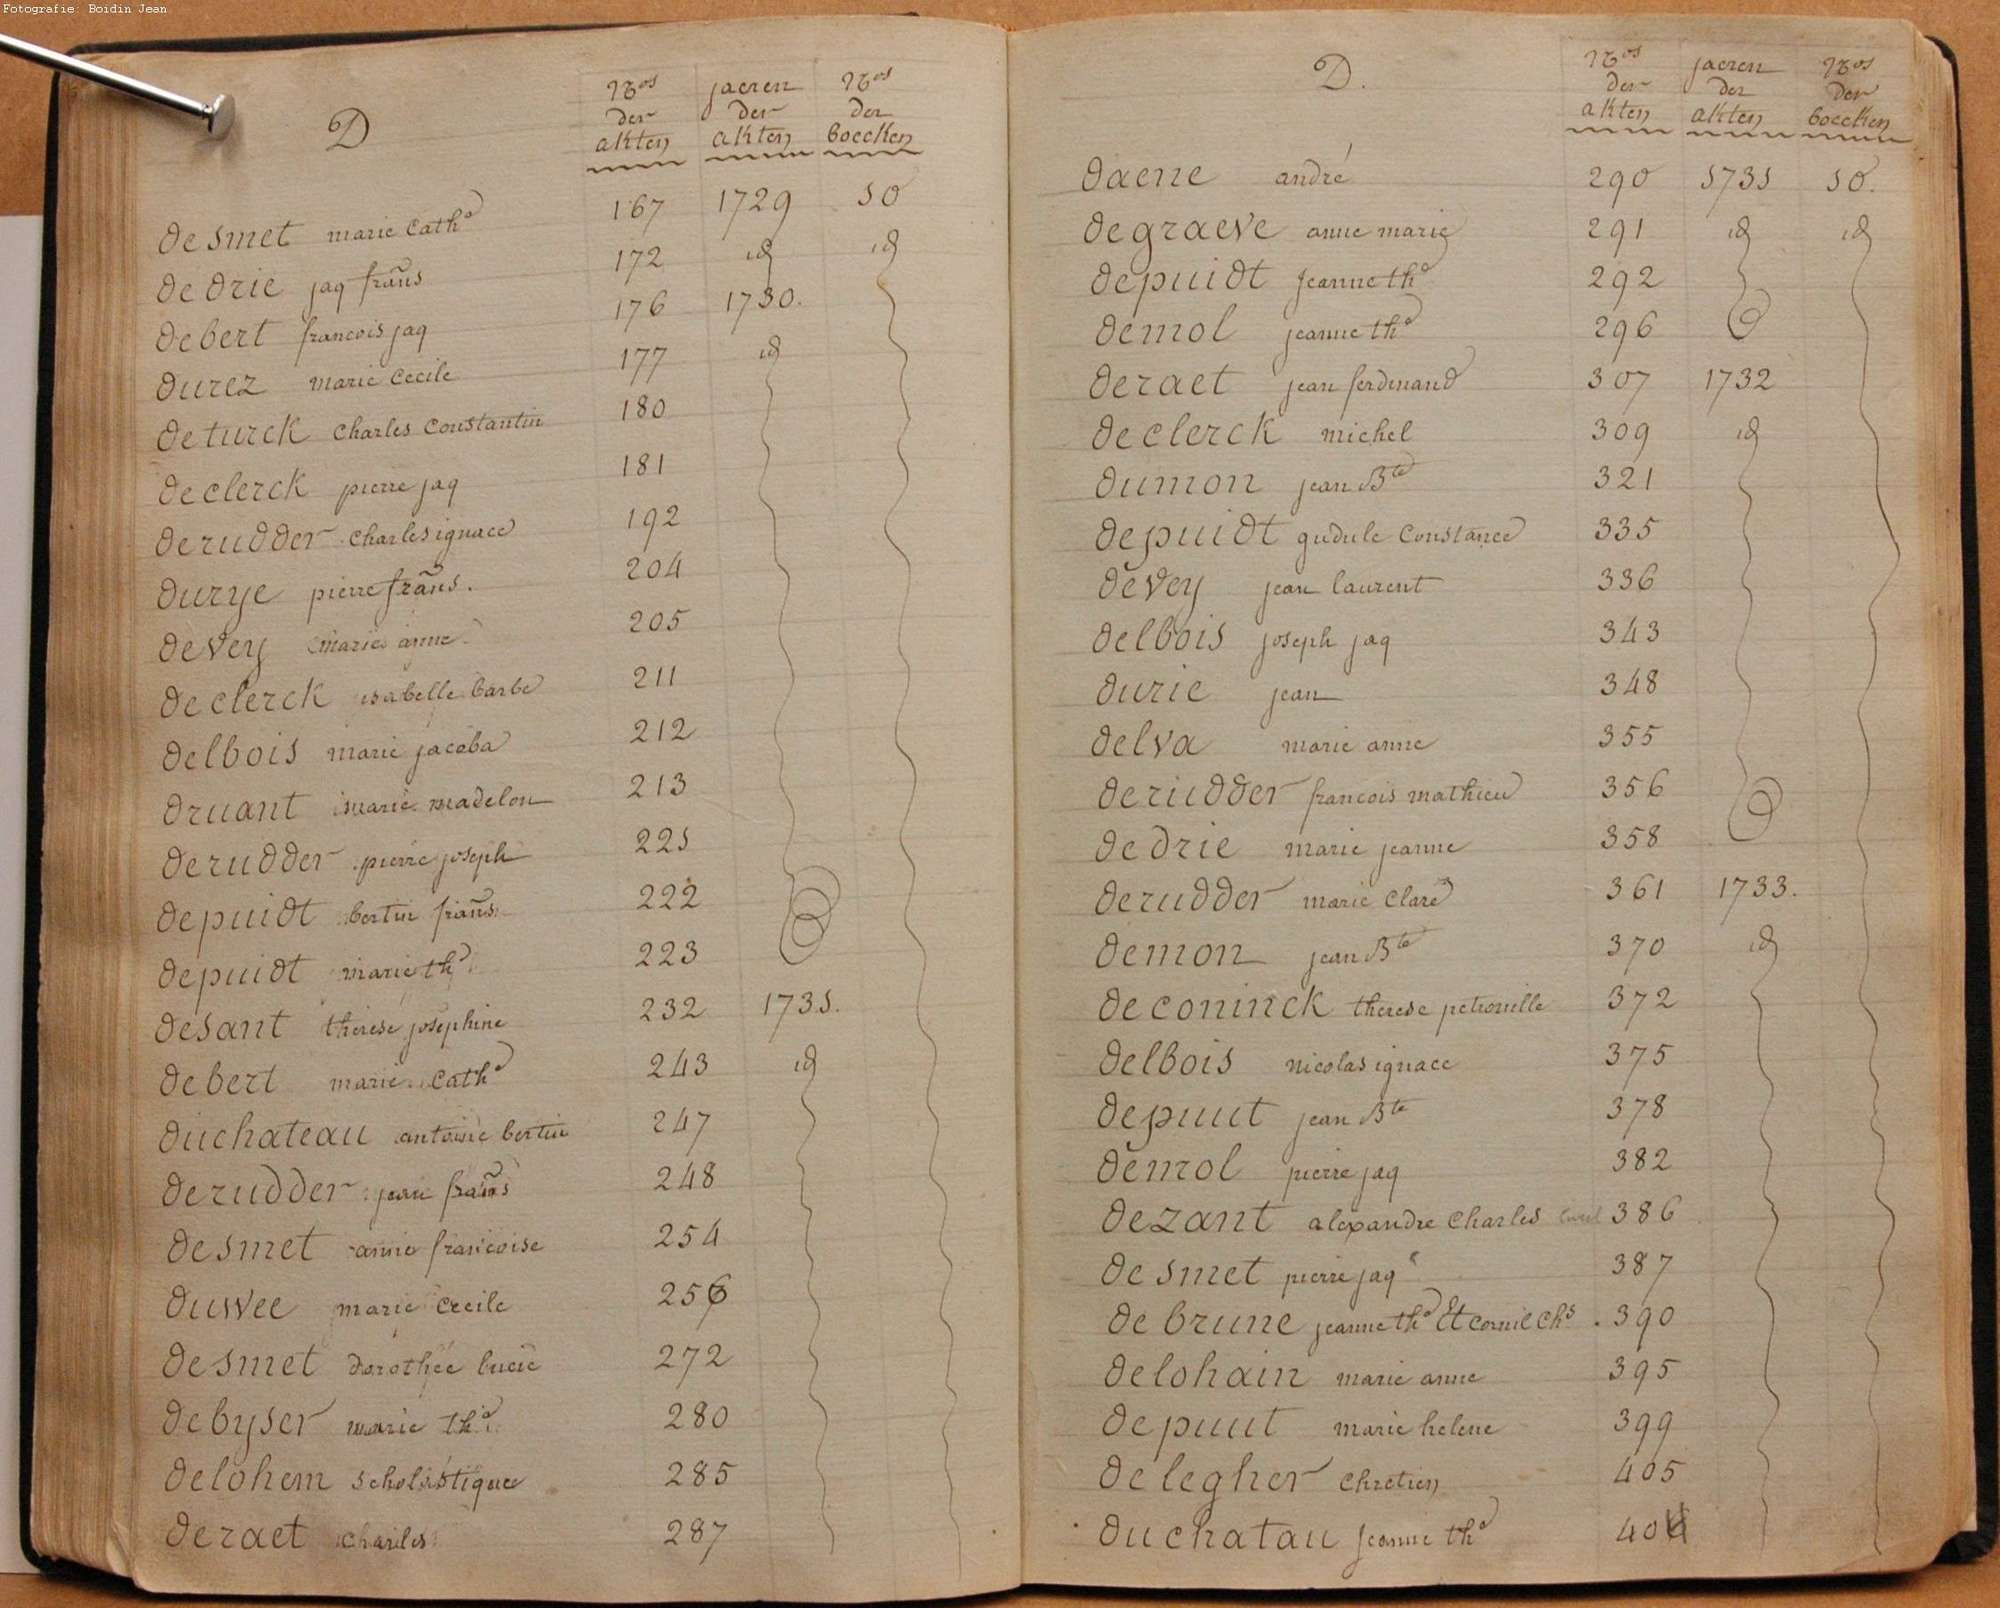 Fotografie: Boidin Jean
D
Nos der akten
jaeren der akten
Nos der boecken
desmet marie Cathe 167 1729 10
dedrie jaq frañs 172 id id
debert francois jaq 176 1730.
durez marie Cecile 177 id
deturck Charles Constantin 180
declerck pierre jaq 181
derudder Charles ignace 192
durye pierre frañs. 204
devey marie anne 205
declerck isabelle barbe 211
delbois marie jacoba 212
druant marie madelon 213
derudder pierre joseph 221
depuidt bertin frañs 222
depuidt marie the 223
desant therese josephine 232 1731.
debert marie Cathe 243 id
duchateau antoine bertin 247
derudder jean frañs 248
desmet anne francoise 254
duwee marie Cecile 256
desmet dorothée lucie 272
debyser marie the 280
delohem scholastique 285
deraet Charles 287
D.
Nos der akten
jaeren der akten
Nos der boecken
daene andré 290 1731 10.
degraeve anne marie 291 id id
depuidt jeanne the 292
demol jeanne the 296
deraet jean ferdinand 307 1732
declerck michel 309 id
dumon jean Bte 321
depuidt gudule Constance 335
devey jean laurent 336
delbois joseph jaq 343
durie jean 348
delva marie anne 355
derudder francois mathieu 356
dedrie marie jeanne 358
derudder marie Clare 361 1733.
demon jean Bte 370 id
deconinck therese petronille 372
delbois nicolas ignace 375
depuut jean Bte 378
demol pierre jaq 382
dezant alexandre Charles 386
desmet pierre jaq 387
debrune jeanne the Et cornil Chs . 390
delohain marie anne 395
depuut marie helene 399
delegher Chretien 405
duchatau jeanne the 404